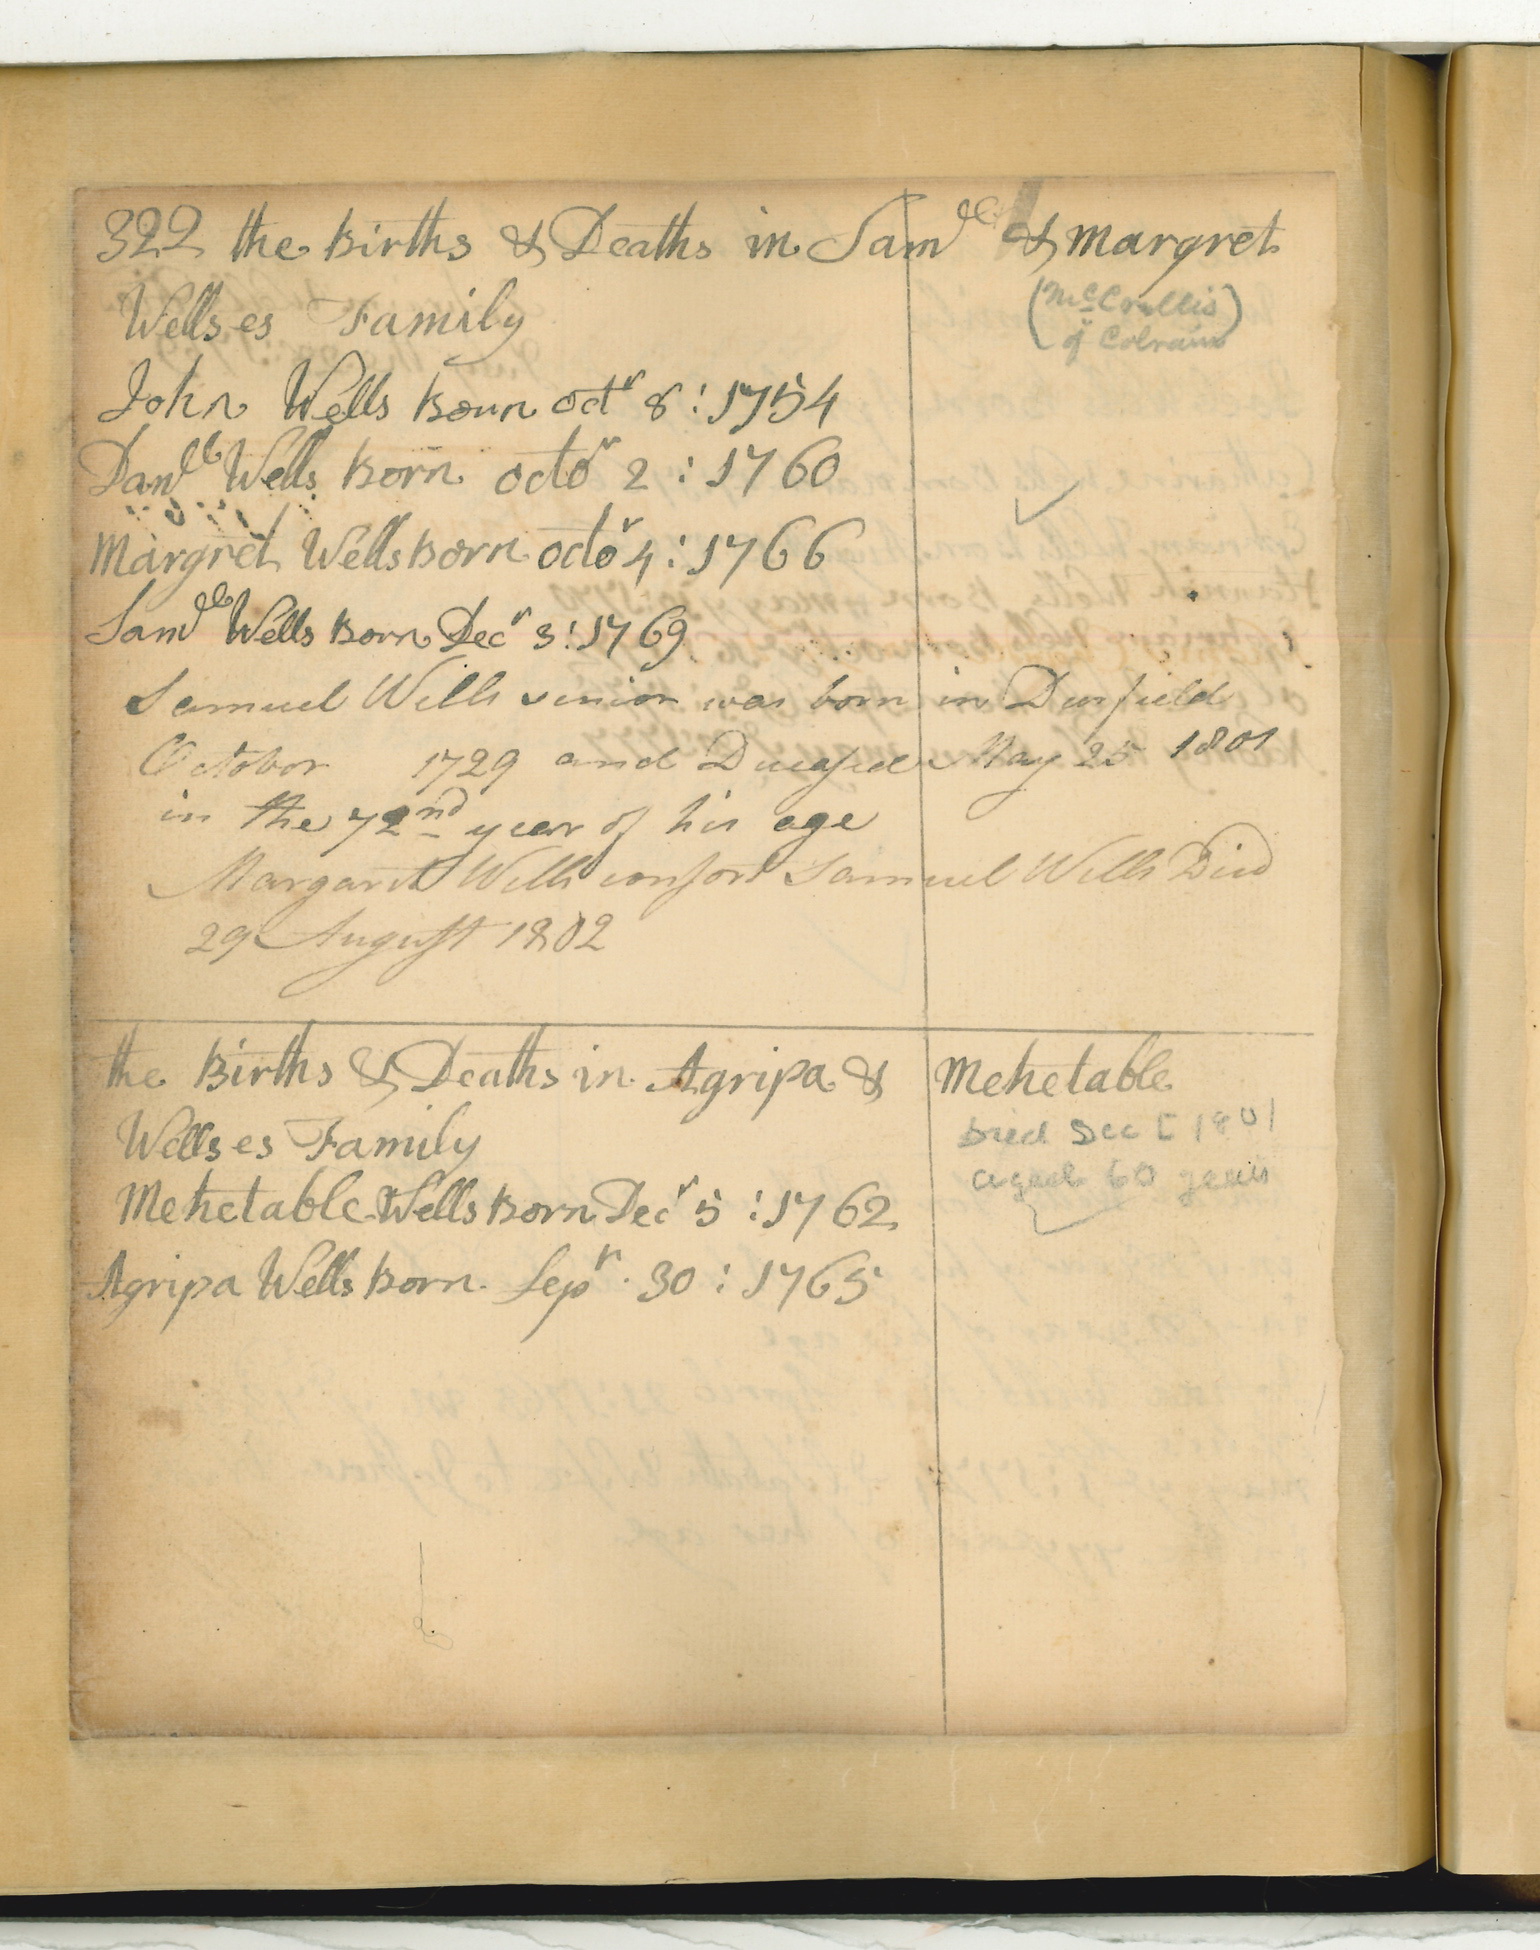 322 the Births & Deaths in Sam^ll & Margret
(McCrellis
of Colrain)
Wellses Family
John Wells Born Oct^r 8 : 1754
Dan^ll Wells Born Octo^r 2 : 1760
Margret Wells Born Octo^r 4 : 1766
Sam^ll Wells Born Dec^r 3 : 1769
Samuel Wells senior was born in Deerfield
October 1729 and Deceased May 25 1801
in the 72^nd year of his age
Margaret Wells consort Samuel Wells Died
29 August 1802
the Births & Deaths in Agripa & Mehetable
Wellses Family
Died Dec 1801
aged 60 years
Mehetable Wells Born Dec^r 5 : 1762
Agripa Wells Born Sep^r 30 : 1765